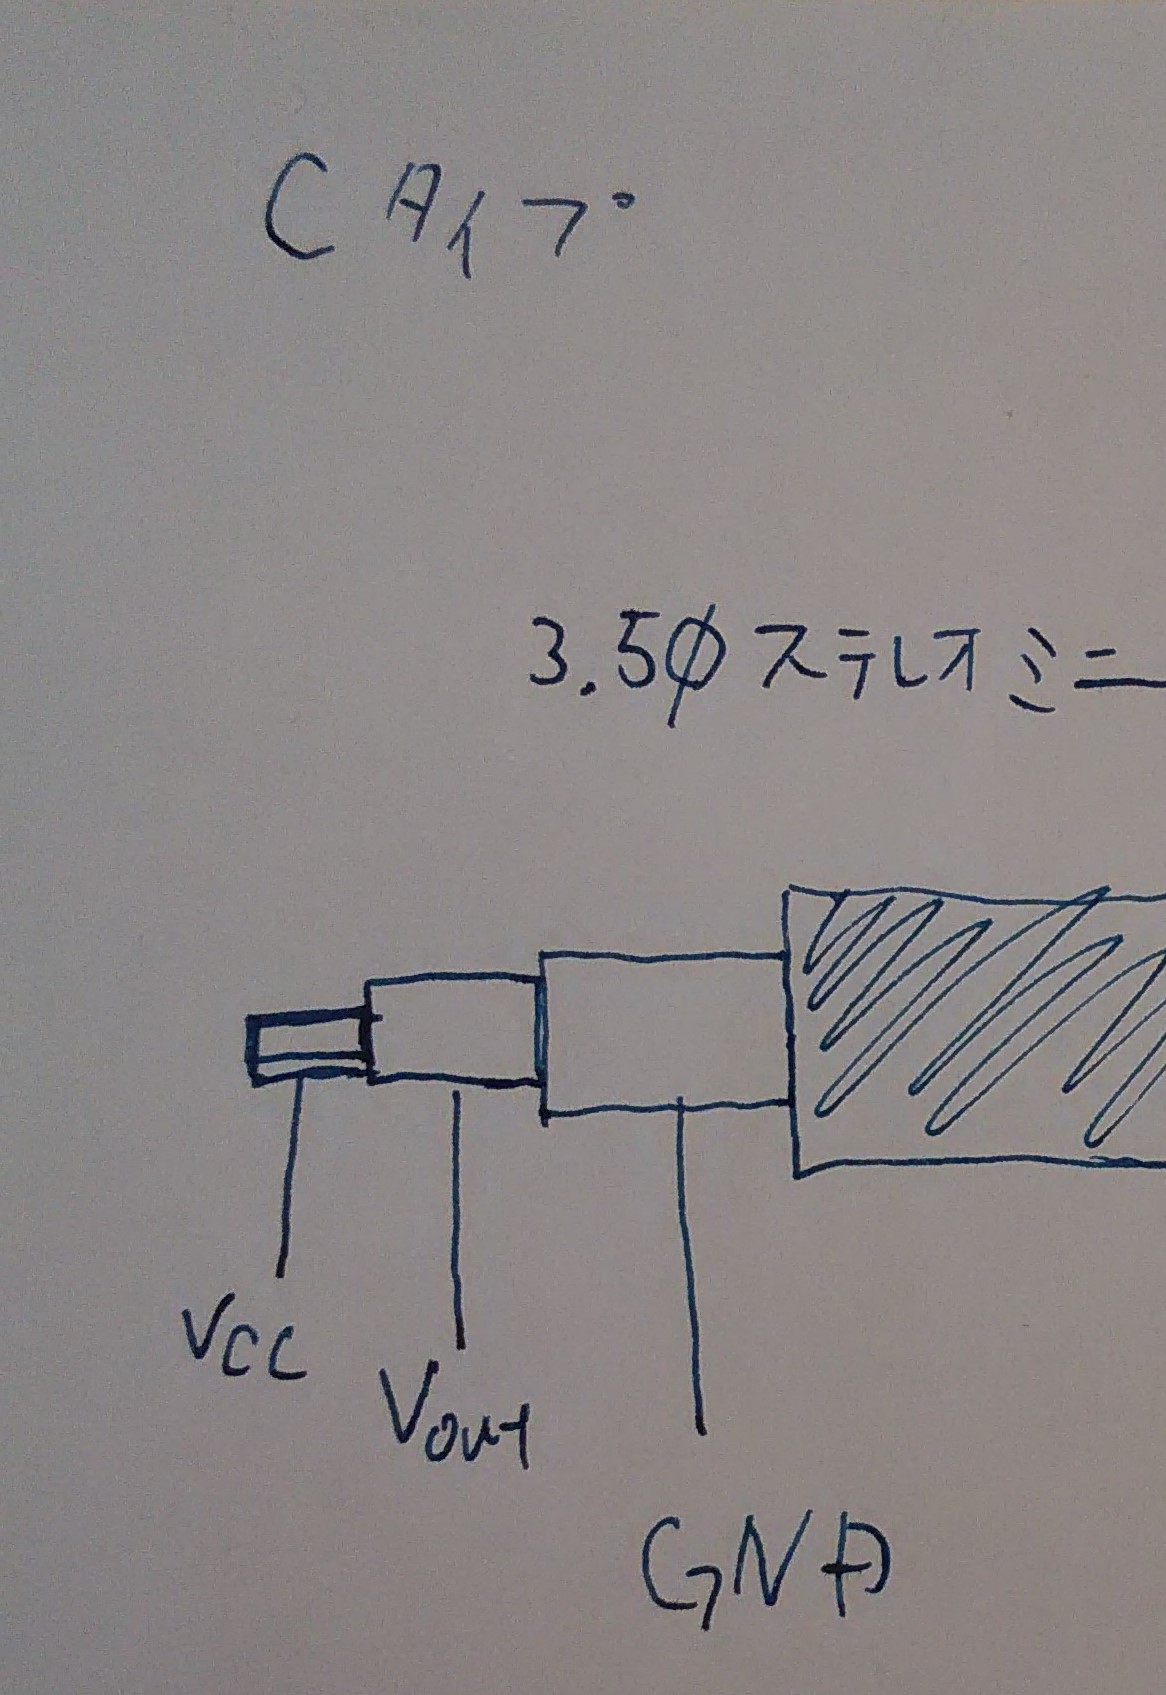 Cタイプ
3.5φステレオミニ
Vcc
Vout
GND